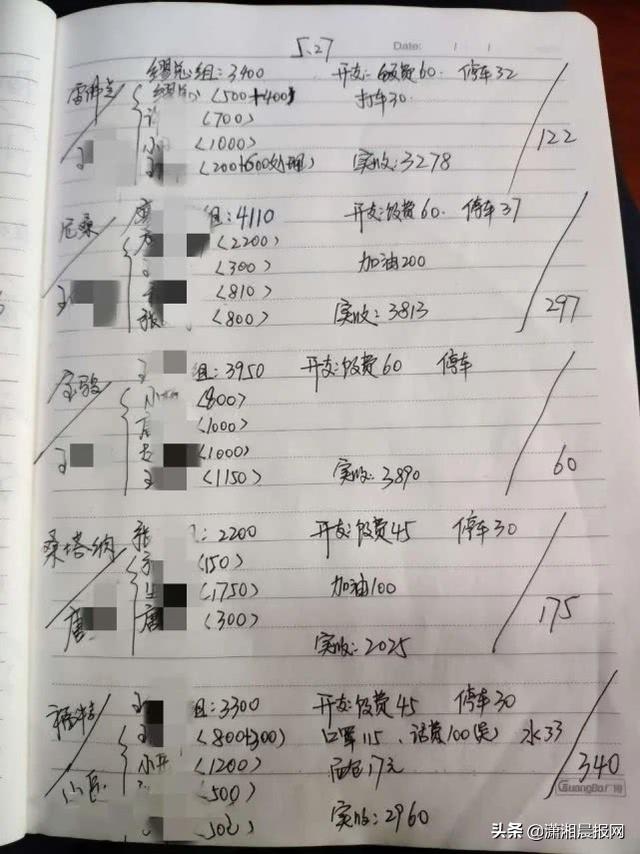 5.27
Date:
缪总组:3400 开支:饭费60 停车32
雷佛兰 缪总(500+400) 打车30
(700)
小 (1000) 122
王 (200+600处理) 实收:3278
唐 组:4110 开支:饭费60. 停车37
尼桑 (2200)
(300) 加油200
(810)
张 (800) 实收:3813 297
王 组:3950 开支:饭费60 停车
宝骏 小 (800)
(1000)
王 (1000)
王 (1150) 实收:3890 60
张 :2200 开支:饭费45 停车30
桑塔纳 (150)
(1750) 加油100
唐 唐 (300) 175
实收:2025
王 组:3300 开支:饭费45 停车30
(800+300) 口罩115、话费100(吴) 水33
小 (1200) 17元 340
(500)
实收:2960
GuangBo广博
头条 @潇湘晨报网